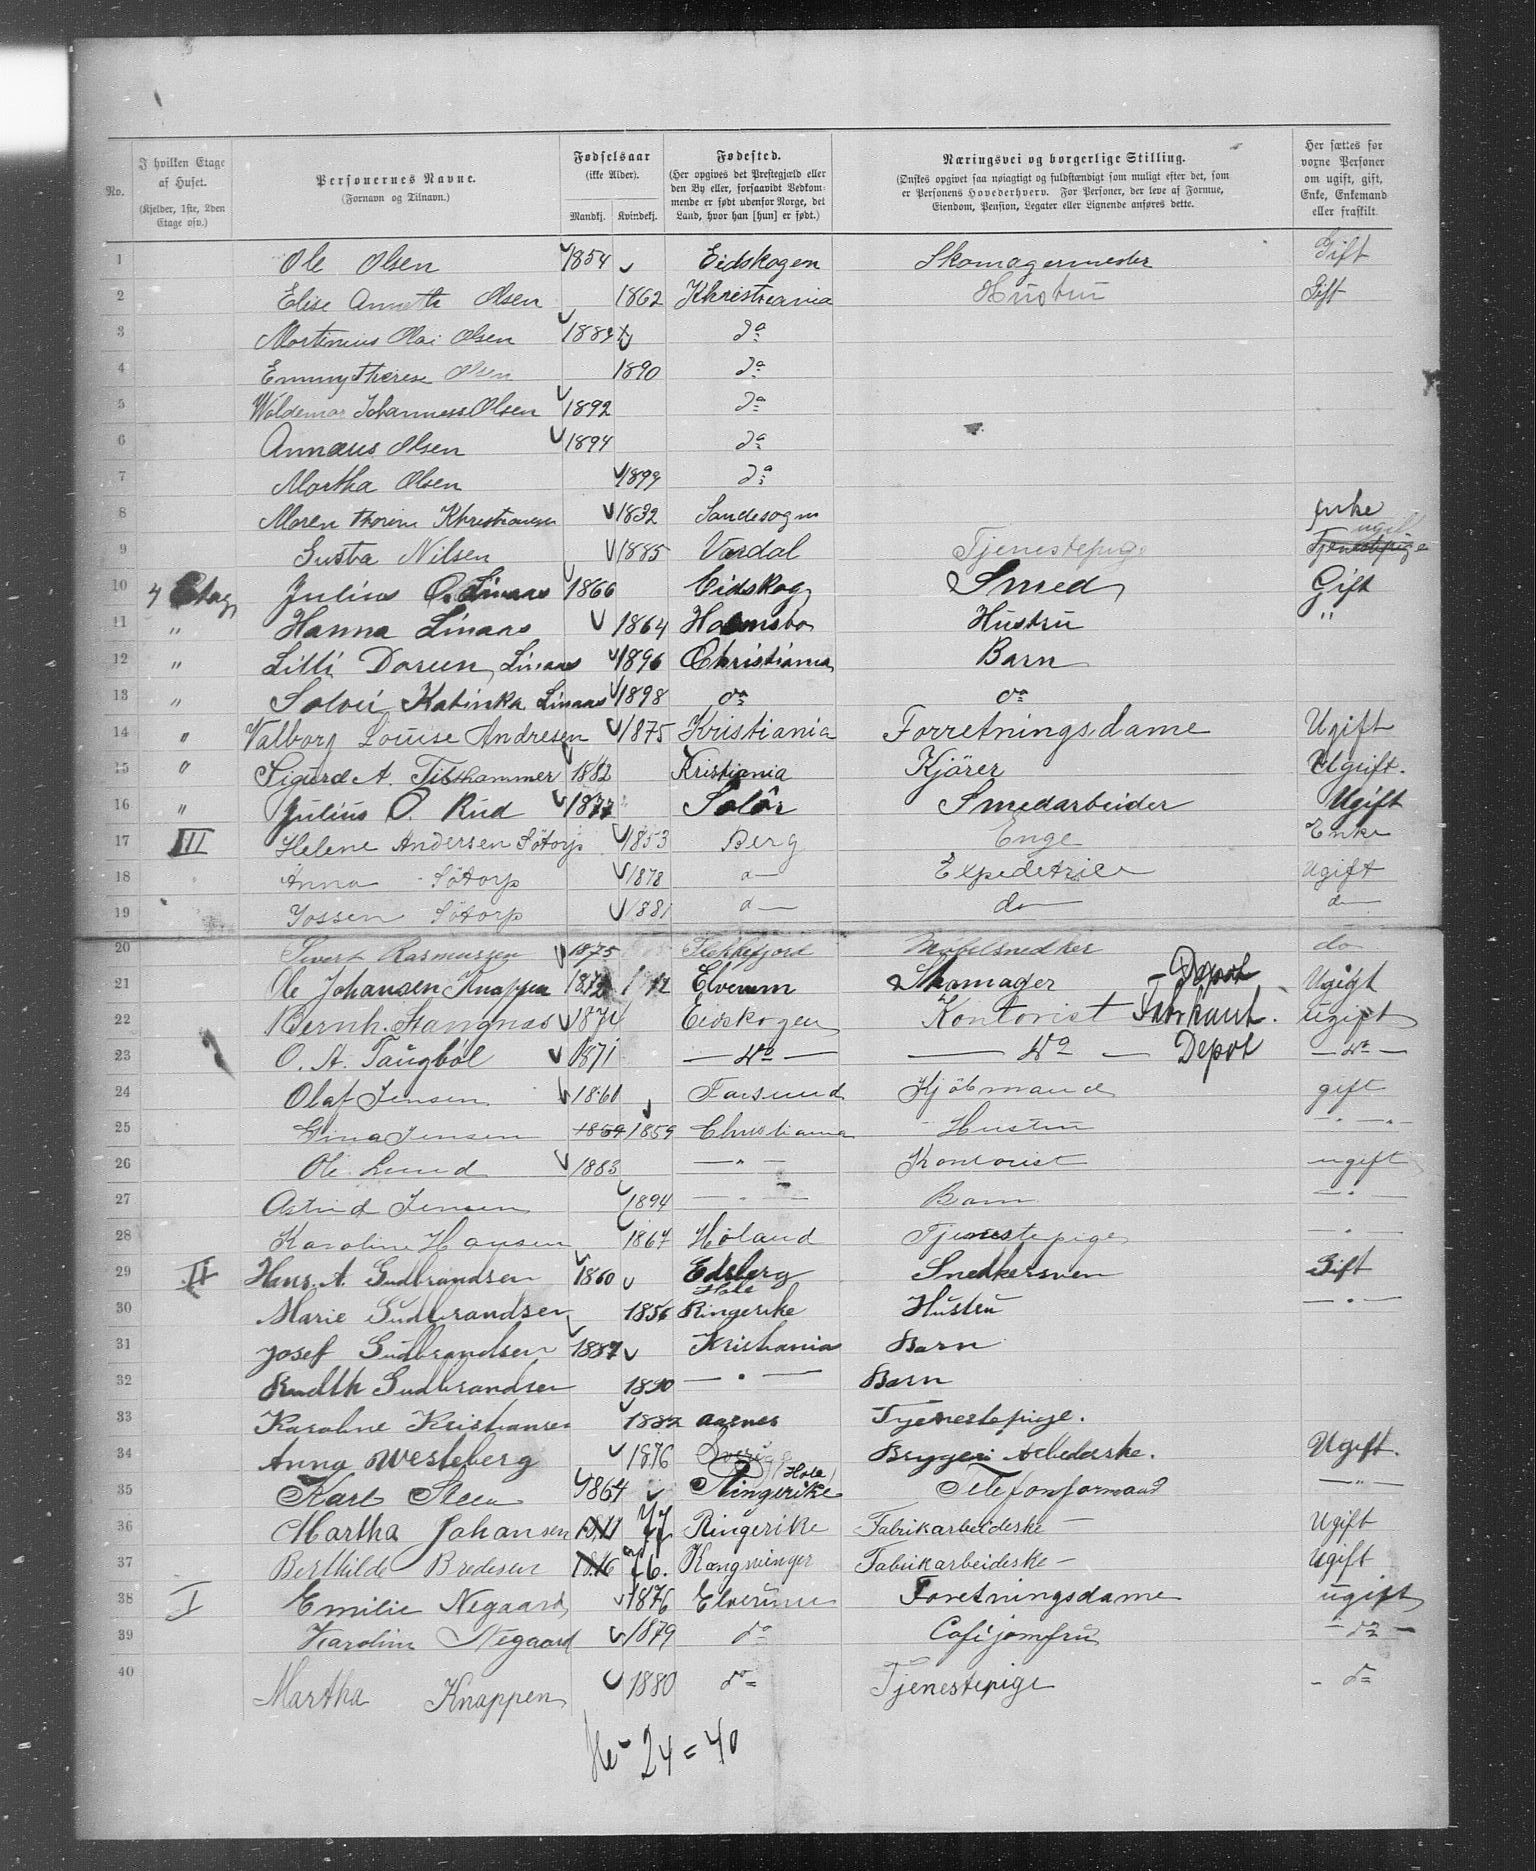 No.
I hvilken Etage af Huset. (Kjelder, 1ste, 2den Etage osv.)
Personernes Navne. (Fornavn og Tilnavn.)
Fødselsaar (ikke Alder). Mandkj. Kvindekj.
Fødested. (Her opgives det Prestegjæld eller den By eller, forsaavidt Vedkommende er født udenfor Norge, det Land, hvor han [hun] er født.)
Næringsvei og borgerlige Stilling. (Ønstes opgivet saa nøiagtigt og fuldstændigt som muligt efter det, som er Personens Hovederhverv. For Personer, der leve af Formue, Eiendom, Pension, Legater eller Lignende anføres dette.)
Her sættes for voxne Personer om ugift, gift, Enke, Enkemand eller fraskilt.
1 Ole Olsen 1854 Eidskogen Skomagermester Gift
2 Elise Annette Olsen 1862 Khristiania Hustru Gift
3 Martinius Olai Olsen 1889 do
4 Emmy Therese Olsen 1890 do
5 Woldemar Johannes Olsen 1892 do
6 Annæus Olsen 1894 do
7 Martha Olsen 1899 do
8 Maren Thorine Khristiansen 1832 Sandesogn Enke
9 Gusta Nilsen 1885 Vardal Tjenestepige Tjenestepige ugift
10 4 Etag Julius O. Linaas 1866 Eidskog Smed Gift
11 " Hanna Linaas 1864 Holmsbo Hustru "
12 " Lilli Doreen Linaas 1896 Christiania Barn
13 " Solvei Katinka Linaas 1898 do do
14 " Valborg Louise Andresen 1875 Kristiania Forretningsdame Ugift
15 " Sigurd A. Tilthammer 1882 Kristiania Kjører Ugift.
16 " Julius O. Rud 1877 Solør Smedarbeider Ugift
17 III Helene Andersen Søtorp 1853 Berg Enge Enke
18 Anna Søtorp 1878 d— Expeditrice Ugift
19 Jossen Søtorp 1881 d— do d—
20 Sivert Rasmussen 1875 Flekkefjord Møbelsnedker do
21 Ole Johansen Knappen 1872 Elverum Skomager - Depot Ugigt
22 Bernh. Stangnas 1874 Eidskogen Kontorist Fabrikant. ugift
23 O. A. Taugbøl 1871 — do — — do — Depot — do —
24 Olaf Jensen 1860 Farsund Kjøbmand gift
25 Gina Jensen 1859 1859 Christiania Hustru " -
26 Ole Lund 1883 — " — Kontorist ugift
27 Astrid Jensen 1894 — " — Barn — " —
28 Karoline Hansen 1867 Høland Tjenestepige — " —
29 II Hans. A. Gudbrandsen 1860 Edsberg Snedkersven Gift
30 Marie Gudbrandsen 1856 Hole Ringerike Hustru — " —
31 Josef Gudbrandsen 1887 Kristiania Barn
32 Gudbrandsen 1890 — " — Barn
33 Karoline Kristiansen 1882 aarnes Tjenestepige.
34 Anna Westeberg 1876 Sverige Bryggeri Arbederske. Ugift.
35 Karl Steen 1864 Ringerike (Hole) Telefonformand — " —
36 Martha Johansen 77 Ringerike Fabrikarbeideske — Ugift
37 Berthilde Bredesen 76. Kongsvinger Fabrikarbeideske — Ugift
38 I Emilie Negaard 1876 Elverum Foretningsdame ugift
39 Karoline Negaard 1879 do Cafejomfru - do -
40 Martha Knappen 1880 do Tjenestepige - do
24 = 40